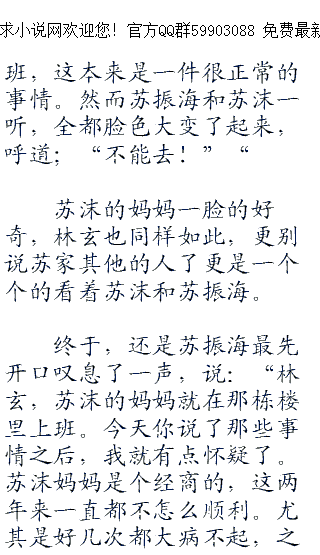 求小说网欢迎您！官方QQ群59903088 免费最新
班，这本来是一件很正常的
事情。然而苏振海和苏沫一
听，全都脸色大变了起来，
呼道；“不能去！”“
苏沫的妈妈一脸的好
奇，林玄也同样如此，更别
说苏家其他的人了更是一个
个的看着苏沫和苏振海。
终于，还是苏振海最先
开口叹息了一声，说：“林
玄，苏沫的妈妈就在那栋楼
里上班。今天你说了那些事
情之后，我就有点怀疑了。
苏沫妈妈是个经商的，这两
年来一直都不怎么顺利。尤
其是好几次都大病不起，之